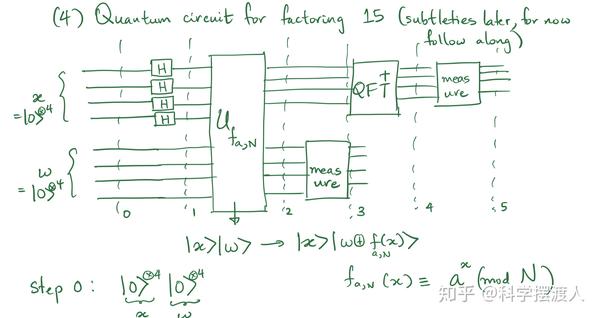 (4) Quantum circuit for factoring 15 (subtleties later, for now
follow along)
x
=|0⟩^⊗4
H
H
H
H
U_f_a,N
QFT†
meas
ure
w
=|0⟩^⊗4
meas
ure
0 1 2 3 4 5
|x⟩|w⟩ → |x⟩|w⊕f_a,N(x)⟩
step 0: |0⟩^⊗4 |0⟩^⊗4
x w
f_a,N(x) ≡ a^x (mod N)
知乎 @科学摆渡人